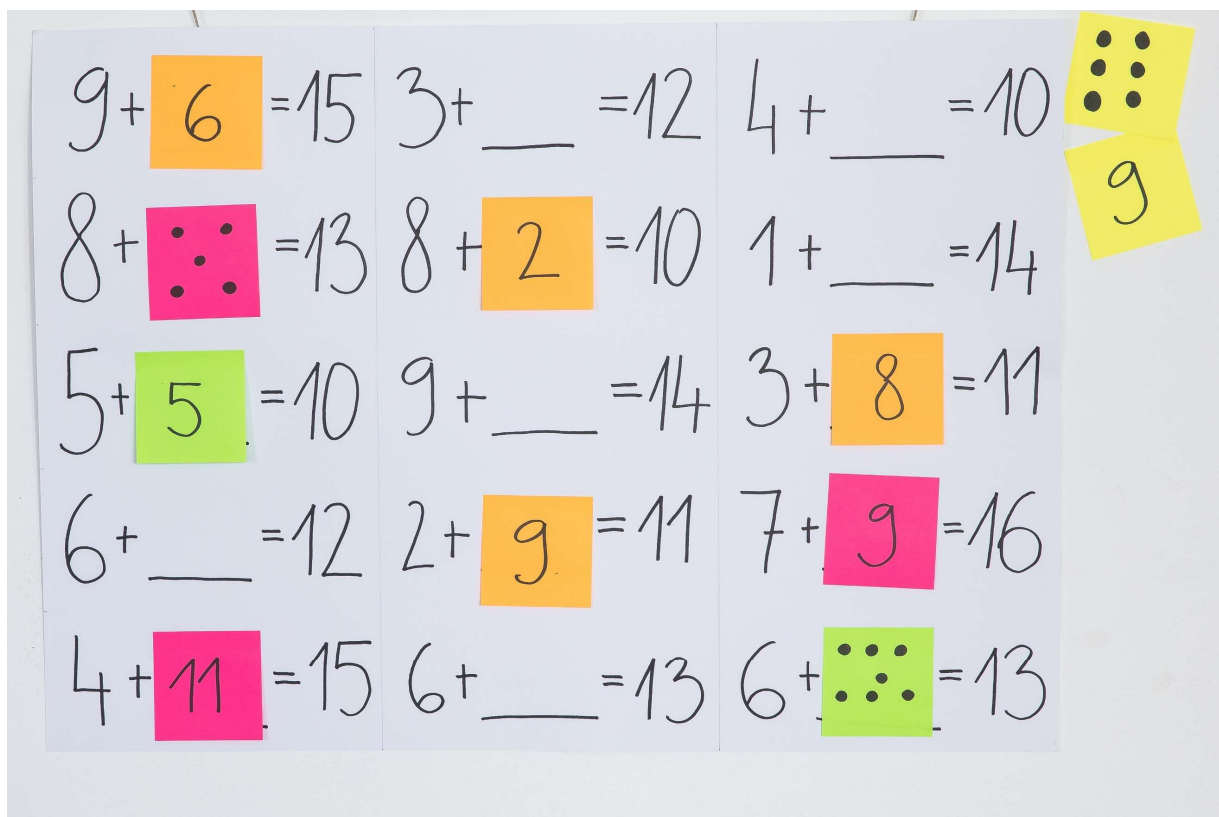 9+ 6 =15
8+ =13
5+ 5 =10
6+ ___ =12
4+ 11 =15
3+ ___ =12
8+ 2 =10
9+ ___ =14
2+ 9 =11
6+ ___ =13
4+ ___ =10
1+ ___ =14
3+ 8 =11
7+ 9 =16
6+ =13
9